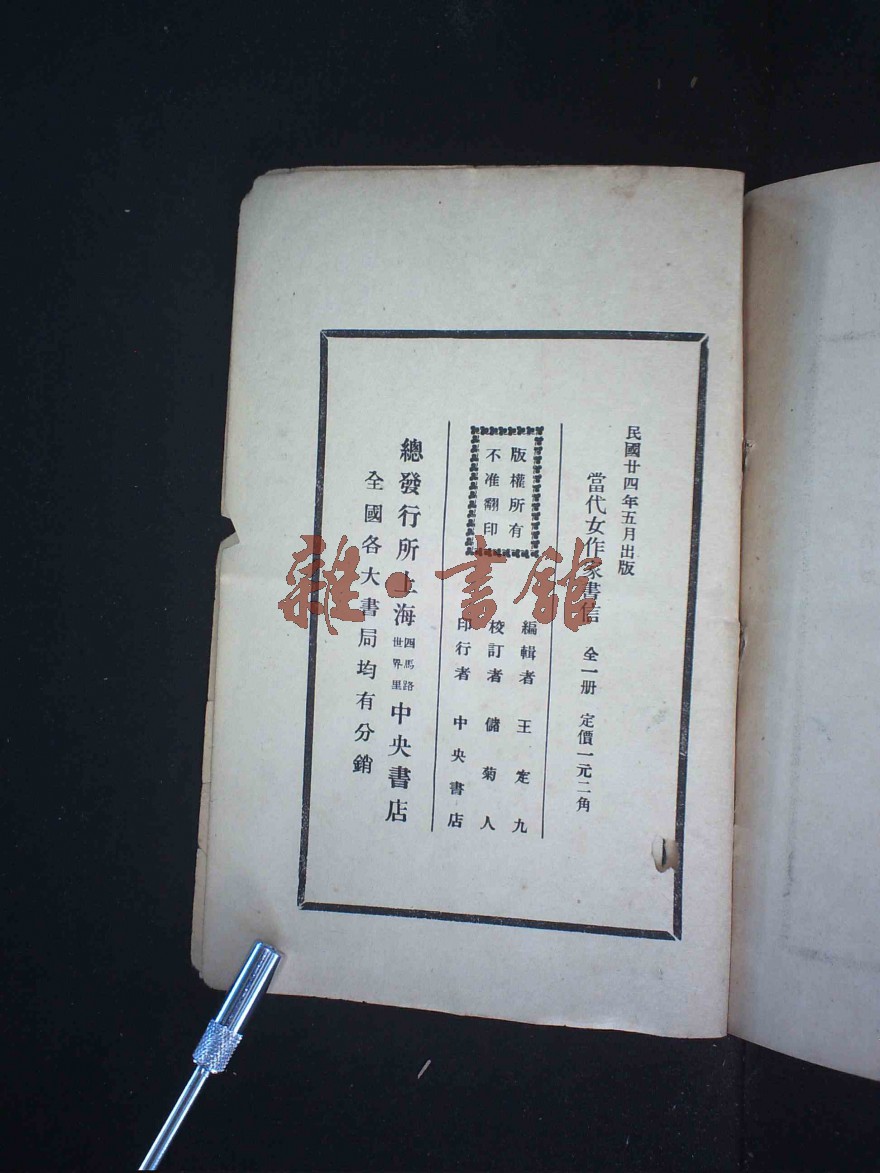 民國廿四年五月出版
當代女作家書信 全一册 定價一元二角
版權所有
不准翻印
編輯者 王定九
校訂者 儲菊人
印行者 中央書店
總發行所上海四馬路世界里中央書店
全國各大書局均有分銷
雜·書館